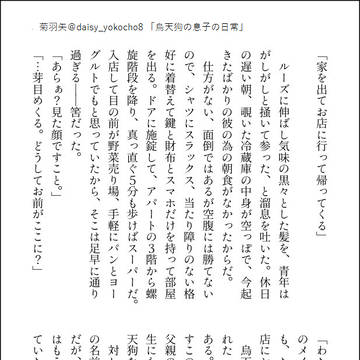 菊羽矢＠daisy_yokocho8 「烏天狗の息子の日常」
「家を出てお店に行って帰ってくる」
ルーズに伸ばし気味の黒々とした髪を、青年は
がしがしと掻いて参った、と溜息を吐いた。休日
の遅い朝。覗いた冷蔵庫の中身が空っぽで、今起
きたばかりの彼の為の朝食がなかったからだ。
仕方がない、面倒ではあるが空腹には勝てない
ので、シャツにスラックス、当たり障りのない格
好に着替えて鍵と財布とスマホだけを持って部屋
を出る。ドアに施錠して、アパートの3階から螺
旋階段を降り、真っ直ぐ5分も歩けばスーパーだ。
入店して目の前が野菜売り場、手軽にパンとヨー
グルトでもと思っていたから、そこは足早に通り
過ぎる――筈だった。
「あらぁ？見た顔ですこと。」
「…芽目めくる。どうしてお前がここに？」
「わ
のメ
も、
店に
れた
ある。
すこ
父親の
生に
天狗
対し
の名前
だが、
はも
てい